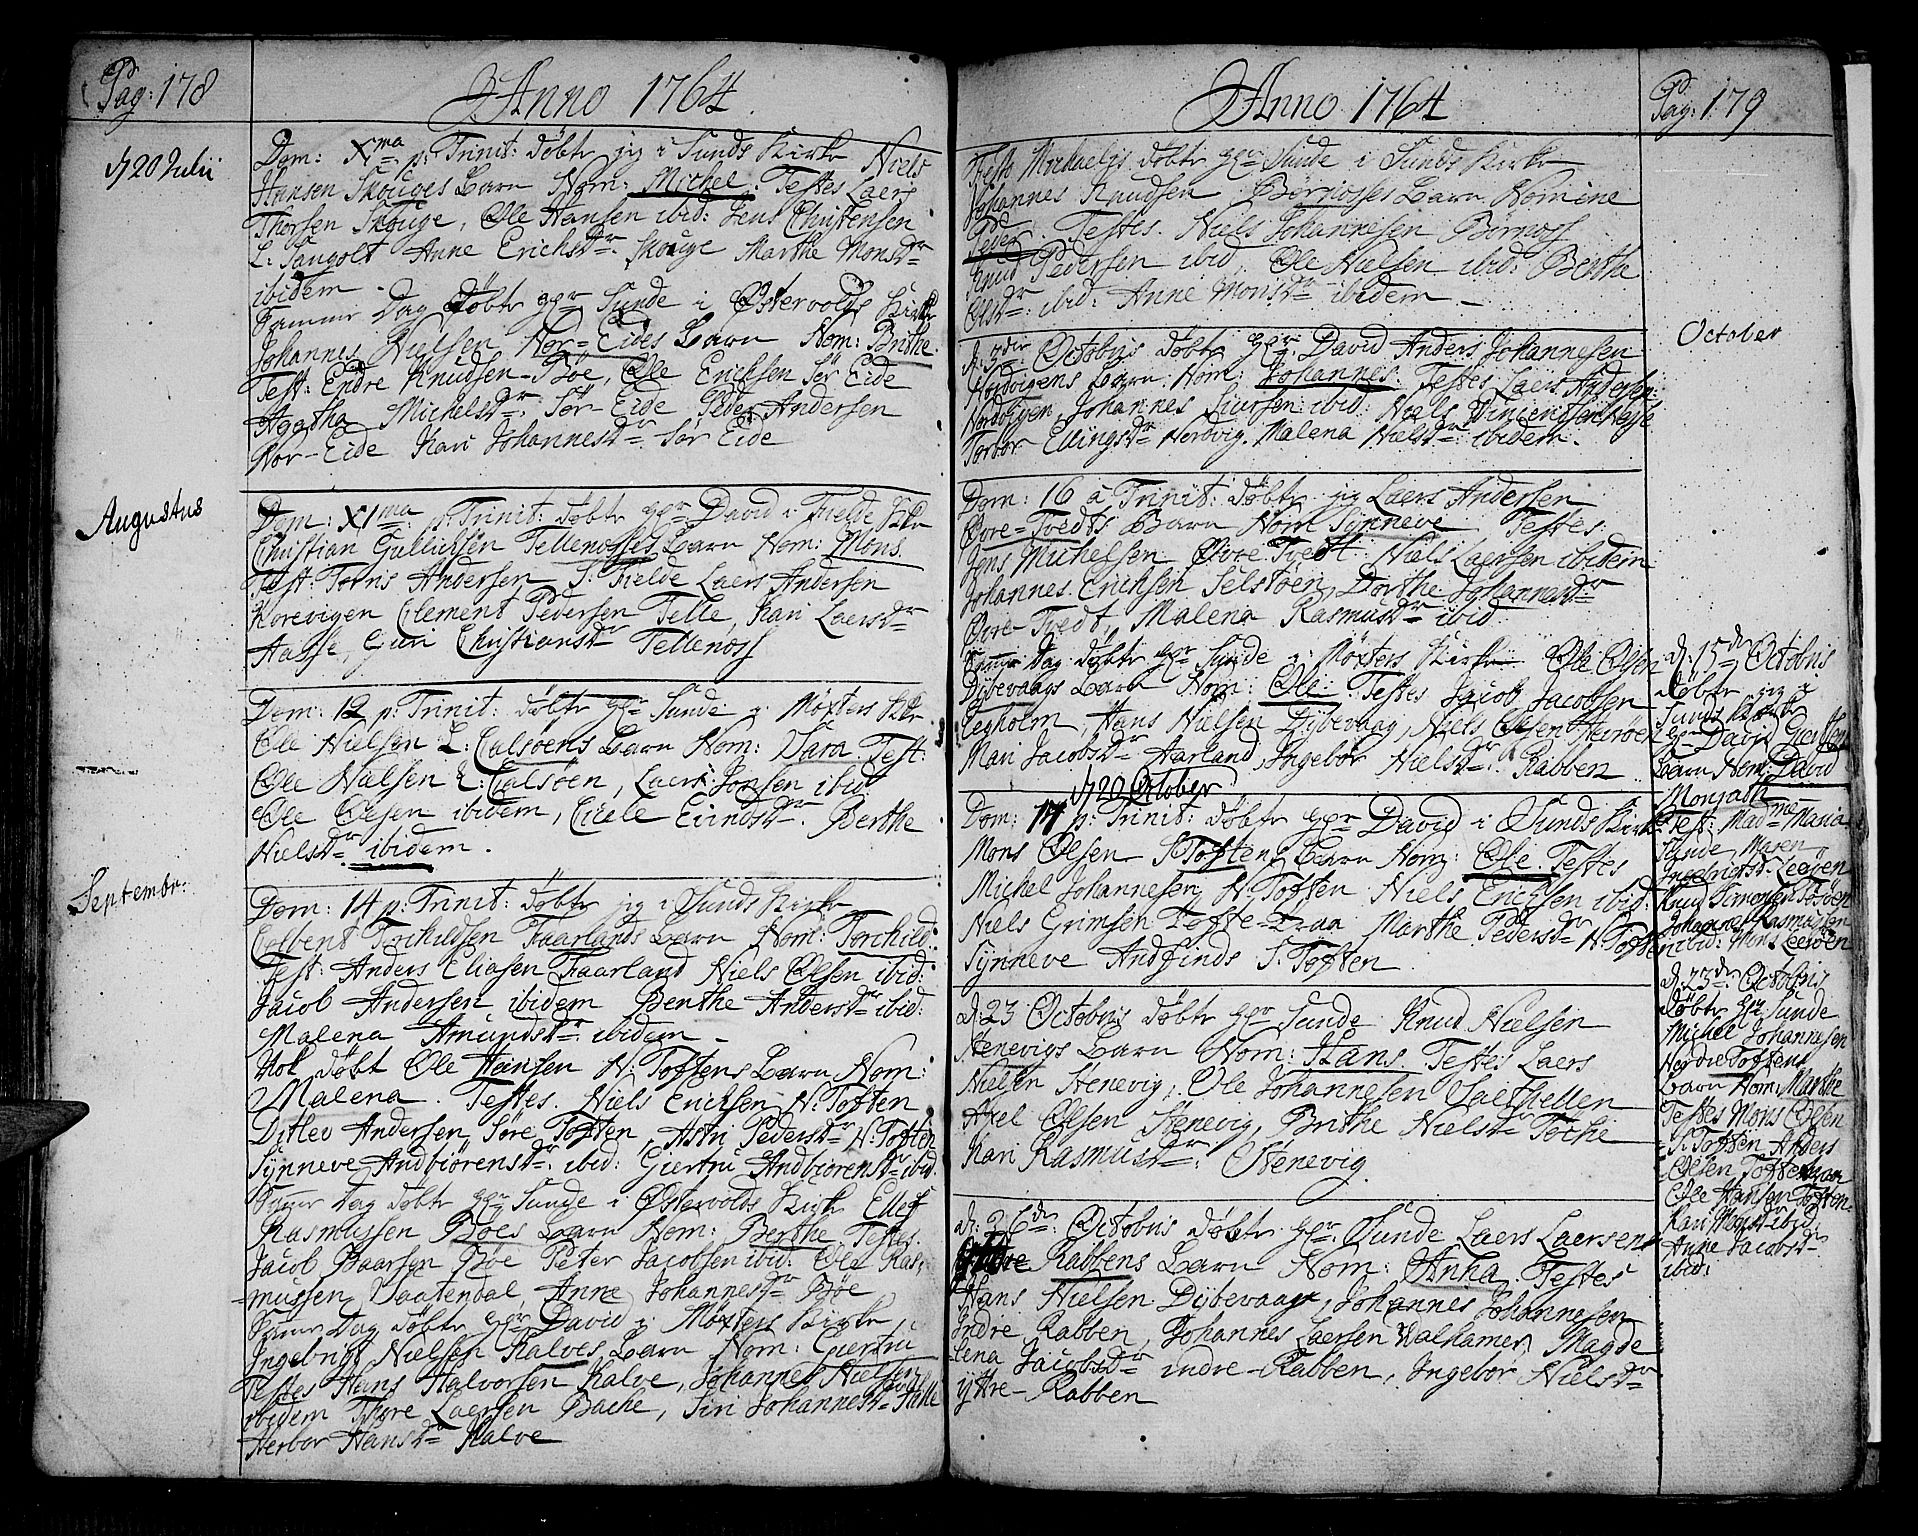 Pag: 178
Anno 1764
d 20 Julii
Dom: Xma p: Trinit: døbte jeg i Sunds Kirke Niels
Hansen Skouges Barn Nom: Michel. Testes Laers
Thorsen Skouge, Ole Hansen ibid: Jens Christensen
L: Sangolt Anne Erichsdr Skouge Marthe Monsdr
ibidem.
Samme Dag døbte Hr Sunde i Østervolds Kirke
Johannes Nielsen Nor-Eides Barn Nom: Brithe.
Test: Endre Knudsen Bøe, Ole Ericksen Sør Eide
Agatha Michelsdr: Sør-Eide Peder Andersen
Nor-Eide Kari Johannesdr Sør Eide
Augustus
Dom: XIma p: Trinit: døbte Hr David i Fielde Kirke
Christian Gullichsen Tellenosses Barn Nom: Mons.
Test: Andersen S: Fielde Laers Andersen
Korevigen Clement Pedersen Telle, Kari Laersdr
Haffe, Guri Christiansdr Tellenoss
Dom: 12 p: Trinit: døbte Hr Sunde i Møxters Kirke
Ole Nielsen L: Calsøens Barn Nom: Sara. Test:
Ole Nielsen L: Calsøen, Laers Jonsen ibid
Ole Olsen ibidem, Eivindsdr. Berthe
Nielsdr ibidem.
Septembr:
Dom: 14 p: Trinit: døbte jeg i Sunds Kirke
Torchildsen Faarlands Barn Nom: Torchild.
Test: Anders Eliasen Faarland Niels Olsen ibid:
Jacob Andersen ibidem Berthe Andersdr ibid:
Malena Amundsdr: ibidem
Nok døbt Ole Hansen N: Toftens Barn Nom:
Malena. Testes. Niels Erichsen N: Toften
Ditlev Andersen, Søre Toften, Astri Pedersdr N: Toften
Synneve Andbiørensdr: ibid: Giertru Andbiørensdr ibid.
Samme Dag døbte Hr Sunde i Østervolds Kirke Ellef
Rasmussen Bøes Barn Nom: Berthe Testes.
Jacob Baarsen Bøe Peter Jacobsen ibid: Ole Ras-
mussen Vaatendal, Anne Johannesdr Bøe
Samme Dag døbte Hr David i Møxters Kirke
Ingebrigt Nielsen Kalves Barn Nom: Giertru
Testes Hans Halvorsen Kalve, Johannes Nielsen
ibidem Thore Laersen Bache, Siri Johannesdr
Herbor Hansdr Kalve
Anno 1764
Pag: 179
Festo Michaelis døbte Hr Sunde i Sunds Kirke
Johannes Knudsen Børnosses Barn Nomine
Peder. Testes. Niels Johannesen Børnoss
Knud Pedersen ibid, Ole Nielsen ibid: Berthe
Olsdr: ibid: Anne Monsdr ibidem
October
d: 3die Octobris døbte Hr: David Anders Johannesen
Nordvigens Barn Nom: Johannes: Testes Laers Andersen
Nordvigen, Johannes Siursen ibid: Niels
Torbor Ellingsdr Nordvig. Malena Nielsdr: ibidem.
Dom: 16 a Trinit: døbte jeg Laers Andersen
Øvre-Tvedts Barn Nom Synneve Testes.
Jens Michelsen Øvre Tvedt. Niels Laersen ibidem
Johannes Erichsen Selstøen, Dorthe Johannesdr
Øvre-Tvedt, Malena Rasmusdr ibid
Samme Dag døbte Hr Sunde i Møxters Kirke Ole Olsen
Dybevaags Barn Nom: Ole: Testes Jacob Jacobsen
Tegholm, Hans Nielsen Dybevaag, Niels Olsen
Mari Jacobsdr Aarland, Ingebor Nielsdr: Rabben
d 20 October
Dom: 17 p: Trinit: døbte Hr David i Sunds Kirke
Mons Olsen S Toftens Barn Nom: Ole Testes
Michel Johannesen N. Toften Niels Erichsen ibid:
Niels Grimsen Tofte-Draa Marthe Pedersdr N Toften
Synneve Andfinds S: Toften
d: 23 Octobris døbte Hr Sunde Knud Nielsen
Stenevigs Barn Nom: Hans Testes Laers
Nielsen Stenevig, Ole Johannesen Saethellen
Axel Olsen Stenevig, Brithe Nielsdr Toche
Kari Rasmusdr: Stenevig.
d: 26de: Octobris døbte Hr: Sunde Laers Laersens
Rabbens Barn Nom: Anna. Testes
Hans Nielsen Dybevaag, Johannes Johannesen
Indre Rabben, Johannes Laersen Valhamer, Magde
lena Jacobsdr indre-Rabben, Ingebor Nielsdr
yttre-Rabben
d: 15de Octobris
døbte jeg i
Sunds Kirke
Hr David
Barn Nom: David
Monrath
Test: Madme Maria
Sunde Maren
Ingebrictsdr Leerøen
Knud Simonsen Tøsøen
Johannes Rasmussen
ibid: Mons Leerøen
d: 23de: Octobris
døbte Hr Sunde
Michel Johannesen
Nordre Toftens
Barn Nom: Marthe
Testes Mons Olsen
S: Toften Anders
Olsen Toftedraa
Ole Hansen Toften
Kari Monsdr ibid
Anne Jacobsdr
ibid: